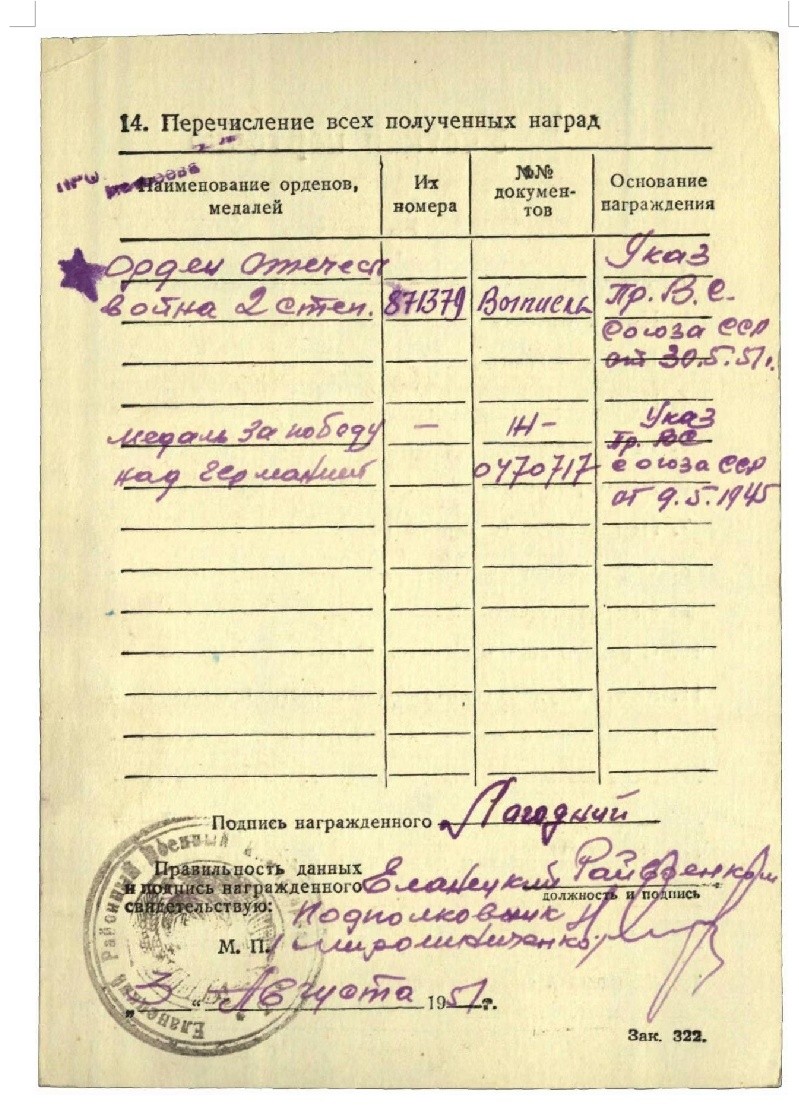 14. Перечисление всех полученных наград
Наименование орденов, медалей
Их номера
№№ документов
Основание награждения
Орден Отечест
война 2 степ. 871379 Выписка
Указ
Пр. В.С.
Союза ССР
от 30.5.51г.
медаль За победу — Ж-
над Германией 0470717
Указ
Пр. ВС
Союза ССР
от 9.5.1945
Подпись награжденного Лагодний
Правильность данных
и подпись награжденного
свидетельствую:
Еланецкий Райвоенком
должность и подпись
Подполковник
М. П.
„3“ Августа 1951г.
Еланецкий Районный Военный
Зак. 322.